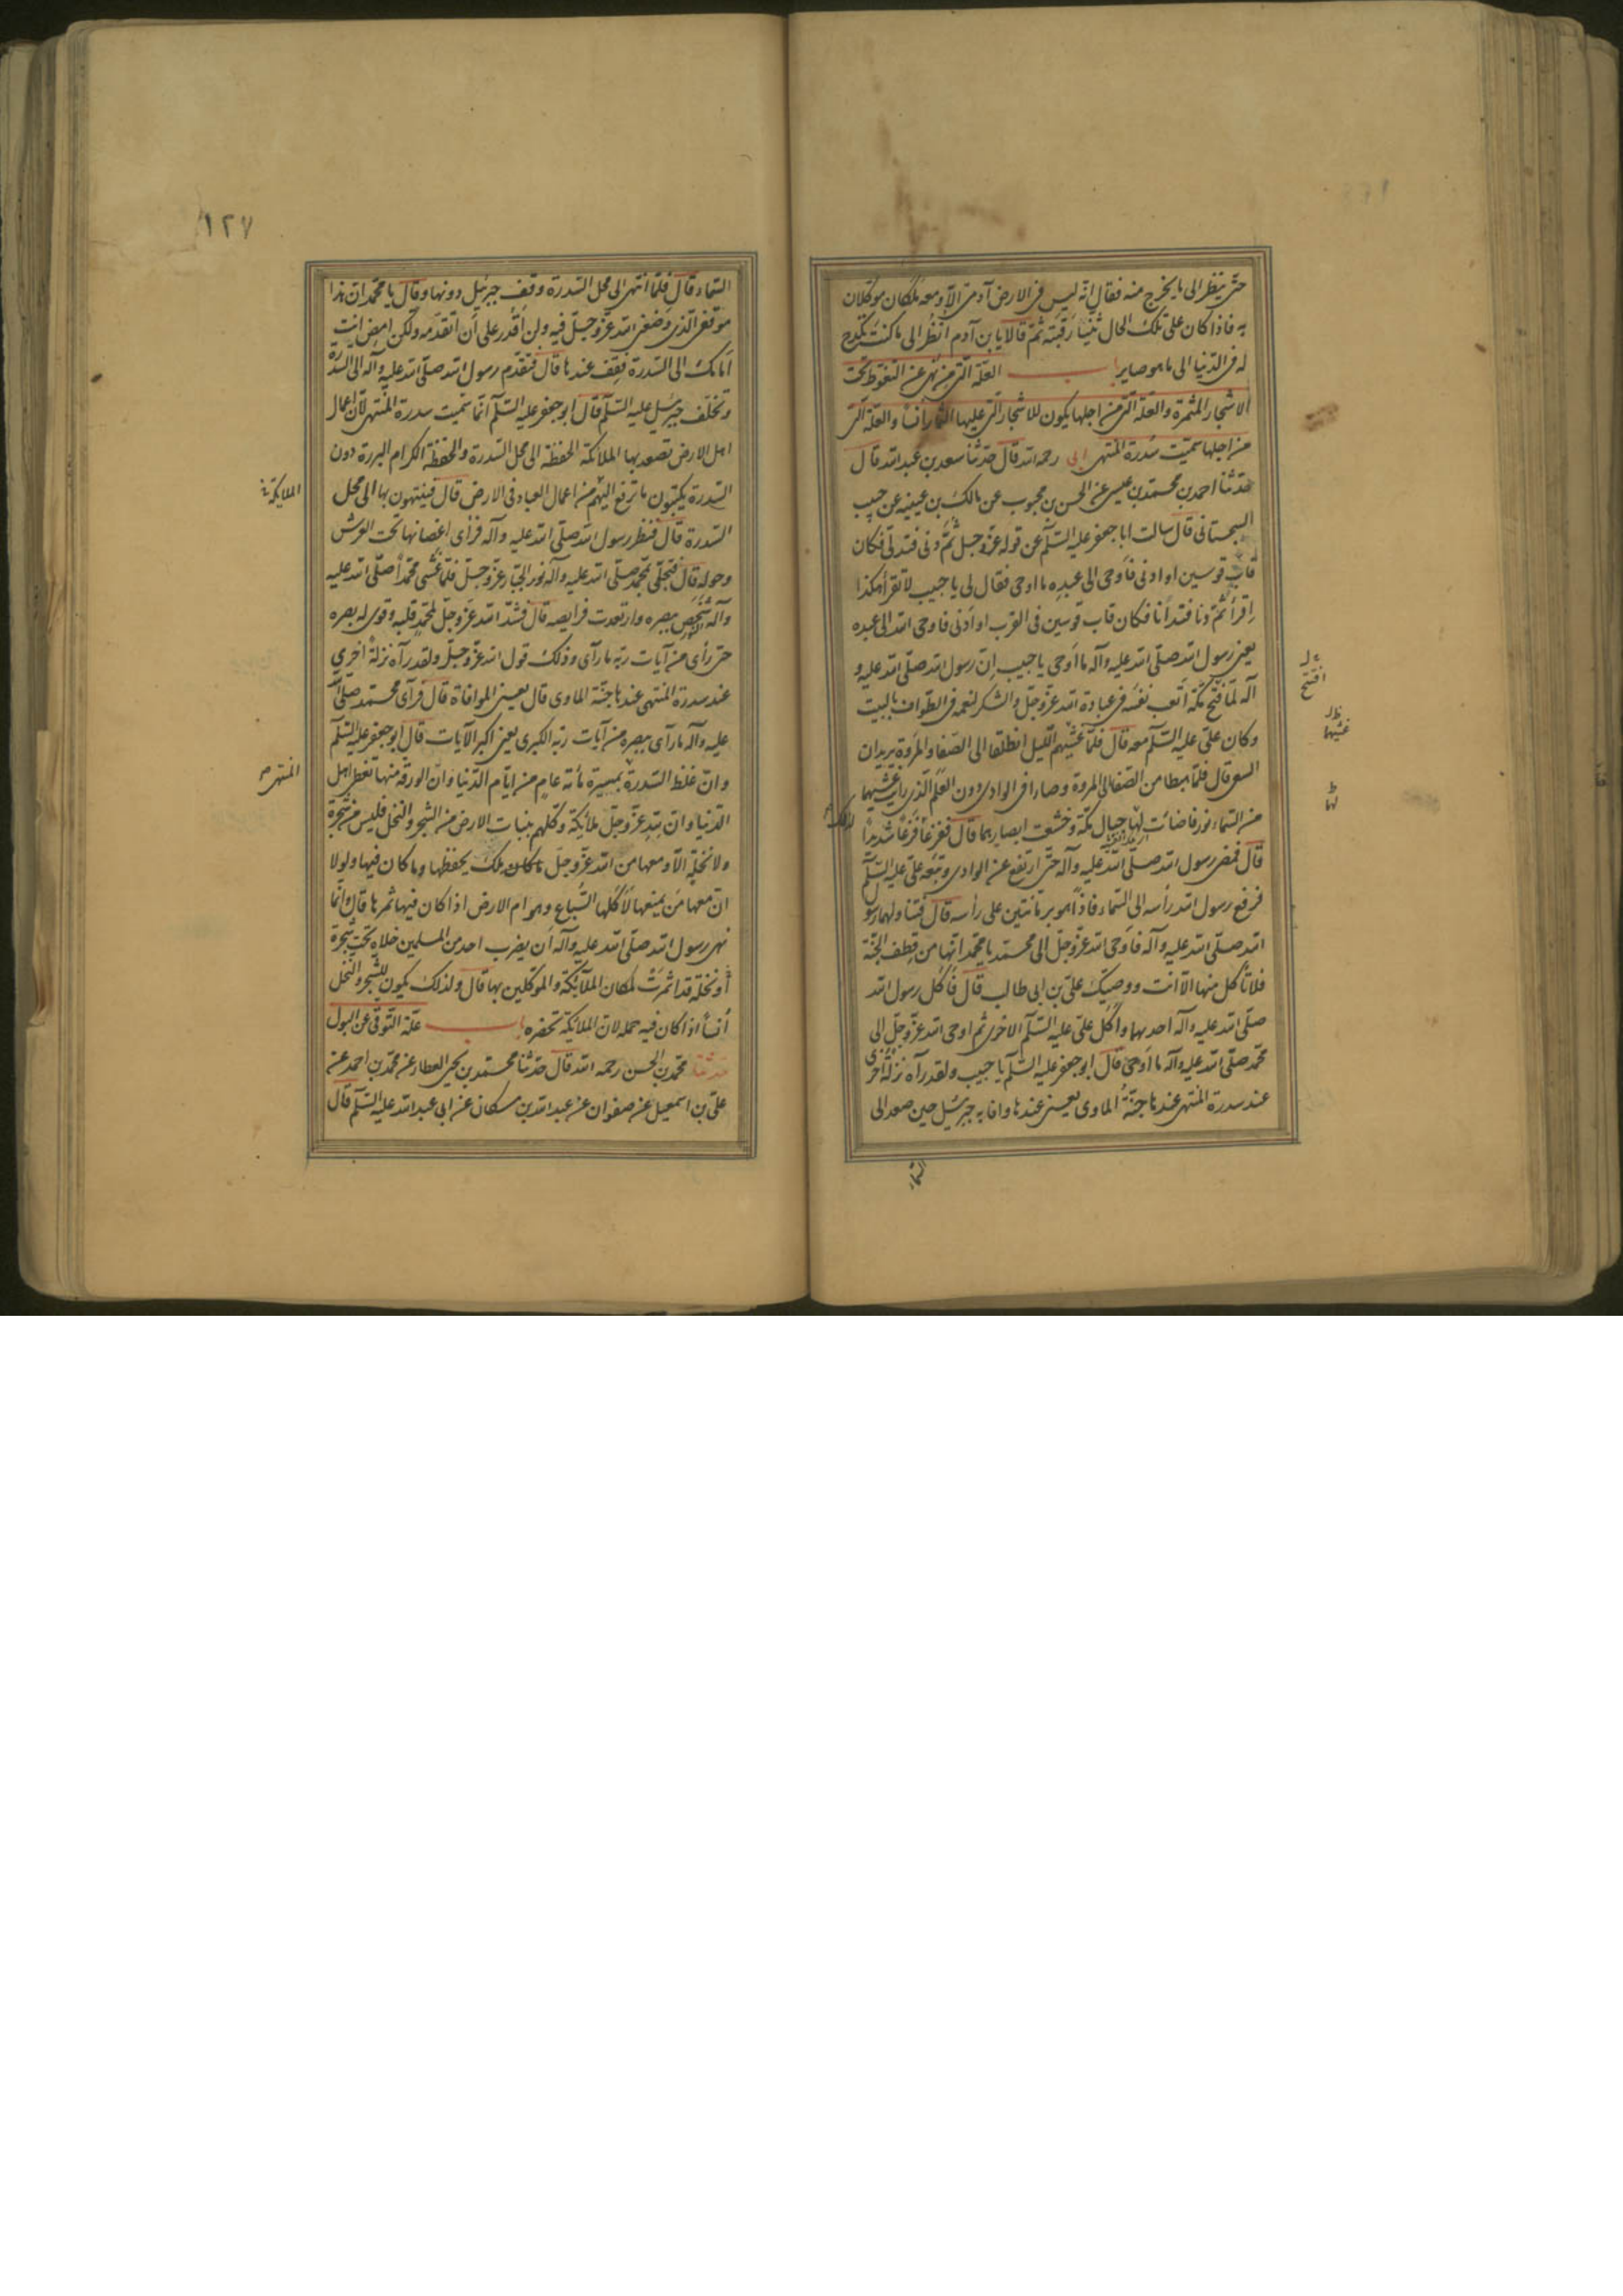 حتّى ينظر الى ما يخرج منه فقال انّه ليس فى الارض آدمىّ الّا و معه ملكان موكّلان
به فاذا كان على تلك الحال ثنيا رقبته ثمّ قالا يا بن آدم انظر الى ما كنت تكدح
له فى الدّنيا الى ما هو صاير باب العلّة الّتى من نهى عن التغوّط تحت
الاشجار المثمرة والعلّة الّتى من اجلها يكون للاشجار الّتى عليها الثمار انسا والعلّة الّتى
من اجلها سمّيت سدرة المنتهى ابى رحمه الله قال حدّثنا سعد بن عبد الله قال
حدّثنا احمد بن محمّد بن عيسى عن الحسن بن محبوب عن مالك بن عيينه عن حبيب
السجستانى قال سالت ابا جعفر عليه السّلم عن قوله عزّ و جلّ ثمّ دنى فتدلّى فكان
قاب قوسين او ادنى فاوحى الى عبده ما اوحى فقال لى يا حبيب لا تقرأ هكذا
اقرأ ثمّ دنا فتدانا فكان قاب قوسين فى القرب او ادنى فاوحى الله الى عبده
يعنى رسول الله صلّى الله عليه وآله ما اوحى يا حبيب انّ رسول الله صلّى الله عليه و
آله لمّا فتح مكّة اتعب نفسه فى عبادة الله عزّ و جلّ والشكر لنعمه فى الطّواف بالبيت
وكان علىّ عليه السّلم معه قال فلمّا غشيهم اللّيل انطلقا الى الصّفا والمروة يريدان
السعى قال فلمّا هبطا من الصّفا الى المروة وصارا فى الوادى دون العلم الّذى رايت غشيهما
من السّماء نور فاضائت لها جبال مكّة وخشعت ابصارهما قال ففزعا فزعا شديدا
قال فمضى رسول الله صلّى الله عليه وآله حتّى ارتفع عن الوادى وتبعه علىّ عليه السّلم
فرفع رسول الله رأسه الى السّماء فاذا هو برمانتين على رأسه قال فتناولهما رسول
الله صلّى الله عليه وآله فاوحى الله عزّ و جلّ الى محمّد يا محمّد انّها من قطف الجنّة
فلا تأكل منها الّا انت ووصيّك علىّ بن ابى طالب قال فأكل رسول الله
صلّى الله عليه وآله احديهما واكل علىّ عليه السّلم الاخرى ثم اوحى الله عزّ و جلّ الى
محمّد صلّى الله عليه وآله ما اوحى قال ابو جعفر عليه السّلم يا حبيب ولقد رآه نزلة اخرى
عند سدرة المنتهى عندها جنّة الماوى يعنى عندها وافا به جبرئيل حين صعد الى
افتتح
غشيهما
لها
السّماء
١٢٧
السّماء قال فلمّا انتهى الى محل السّدرة وقف جبرئيل دونها وقال يا محمّد انّ هذا
موقفى الّذى وضعنى الله عزّ و جلّ فيه ولن اقدر على ان اتقدّمه ولكن امض انت
امامك الى السّدرة فقف عندها قال فتقدّم رسول الله صلّى الله عليه وآله الى السّدرة
وتخلّف جبرئيل عليه السّلم قال ابو جعفر عليه السّلم انّما سمّيت سدرة المنتهى لانّ اعمال
اهل الارض تصعد بها الملائكة الحفظة الى محل السّدرة والحفظة الكرام البررة دون
السّدرة يكتبون ما ترفع اليهم من اعمال العباد فى الارض قال فينتهون بها الى محل
السّدرة قال فنظر رسول الله صلّى الله عليه وآله فرأى اغصانها تحت العرش
وحوله قال فتجلّى لمحمّد صلّى الله عليه وآله نور الجبّار عزّ و جلّ فلمّا غشى محمّدا صلّى الله عليه
وآله شخص ببصره وارتعدت فرايصه قال فشدّ الله عزّ و جلّ لمحمّد قلبه وقوى له بصره
حتّى رأى من آيات ربّه ما رآى وذلك قول الله عزّ و جلّ ولقد رآه نزلة اخرى
عند سدرة المنتهى عندها جنّة الماوى قال يعنى الموافاة قال فرآى محمّد صلّى الله
عليه وآله ما رآى ببصره من آيات ربّه الكبرى يعنى اكبر الآيات قال ابو جعفر عليه السّلم
وانّ غلظ السّدرة بمسيرة مائة عام من ايّام الدّنيا وانّ الورقة منها تغطى اهل
الدّنيا وانّ لله عزّ و جلّ ملائكة وكلهم بنبات الارض من الشجر والنخل فليس من شجرة
ولا نخلة الّا ومعها من الله عزّ و جلّ ملك يحفظها وما كان فيها ولولا
انّ معها من يمنعها لاكلها السّباع وهوام الارض اذا كان فيها ثمرها قال وانّما
نهى رسول الله صلّى الله عليه وآله ان يضرب احد من المسلمين خلاه تحت شجرة
او نخلة قد اثمرت لمكان الملائكة والموكلين بها قال ولذلك يكون للشجر والنخل
انسا اذا كان فيه حمله لانّ الملائكة تحضره باب علّة التّوقّى عن البول
حدّثنا محمّد بن الحسن رحمه الله قال حدّثنا محمّد بن يحيى العطار عن محمّد بن احمد عن
علىّ بن اسمعيل عن صفوان عن عبد الله بن مسكان عن ابى عبد الله عليه السّلم قال
الملائكة
المنتهى